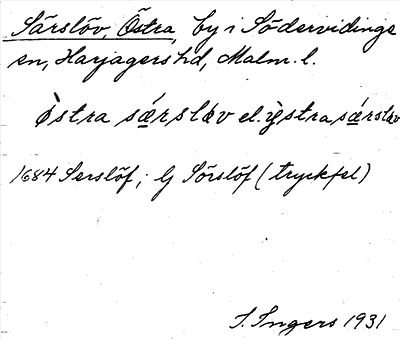 Särslöv, Östra, by i Södervidinge
sn, Harjagers hd, Malm. l.
östra særsløv el. ÿstra særsløv
1684 Serslöf; Lj Sörslöf (tryckfel)
I. Ingers 1931